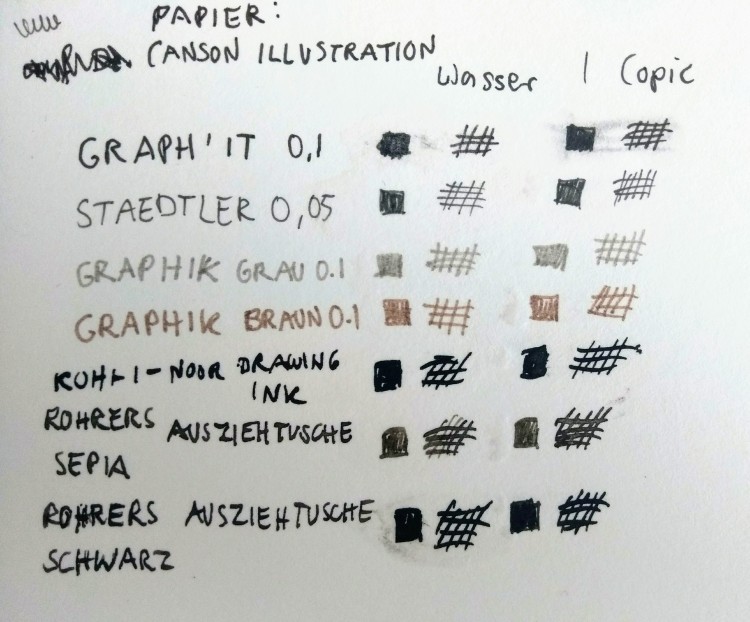 PAPIER:
CANSON ILLUSTRATION
Wasser | Copic
GRAPH'IT 0,1
STAEDTLER 0,05
GRAPHIK GRAU 0.1
GRAPHIK BRAUN 0.1
KOH-I-NOOR DRAWING
INK
ROHRERS AUSZIEHTUSCHE
SEPIA
ROHRERS AUSZIEHTUSCHE
SCHWARZ